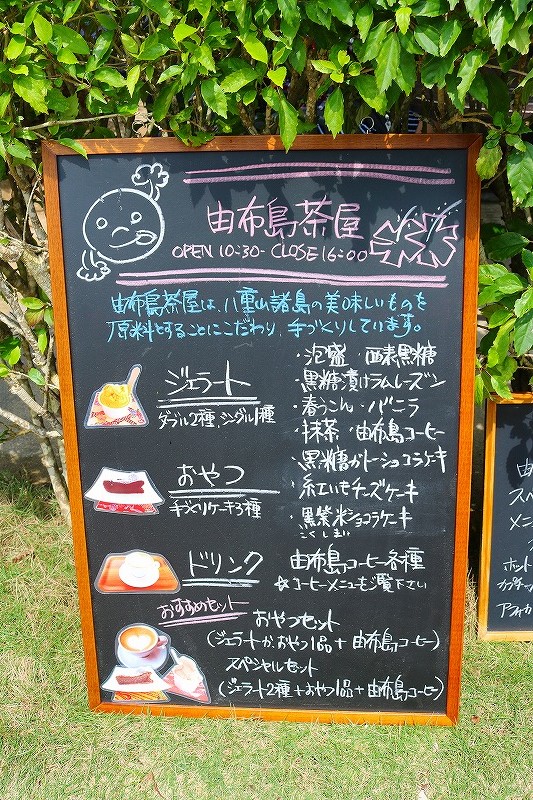 由布島茶屋
OPEN 10:30-CLOSE 16:00
由布島茶屋は、八重山諸島の美味しいものを
原料とすることにこだわり、手づくりしています。
ジェラート
ダブル2種、シングル1種
・泡盛・西表黒糖
・黒糖漬けラムレーズン
・春うこん・バニラ
・抹茶・由布島コーヒー
おやつ
手づくりケーキ3種
・黒糖ガトーショコラケーキ
・紅いもチーズケーキ
・黒紫米ショコラケーキ
くろしまい
ドリンク
由布島コーヒー各種
☆コーヒーメニューもご覧下さい
おすすめセット
おやつセット
(ジェラートか、おやつ1品+由布島コーヒー)
スペシャルセット
(ジェラート2種+おやつ1品+由布島コーヒー)
由
スペ
メニュ
ホット
カプチ
アフォガ